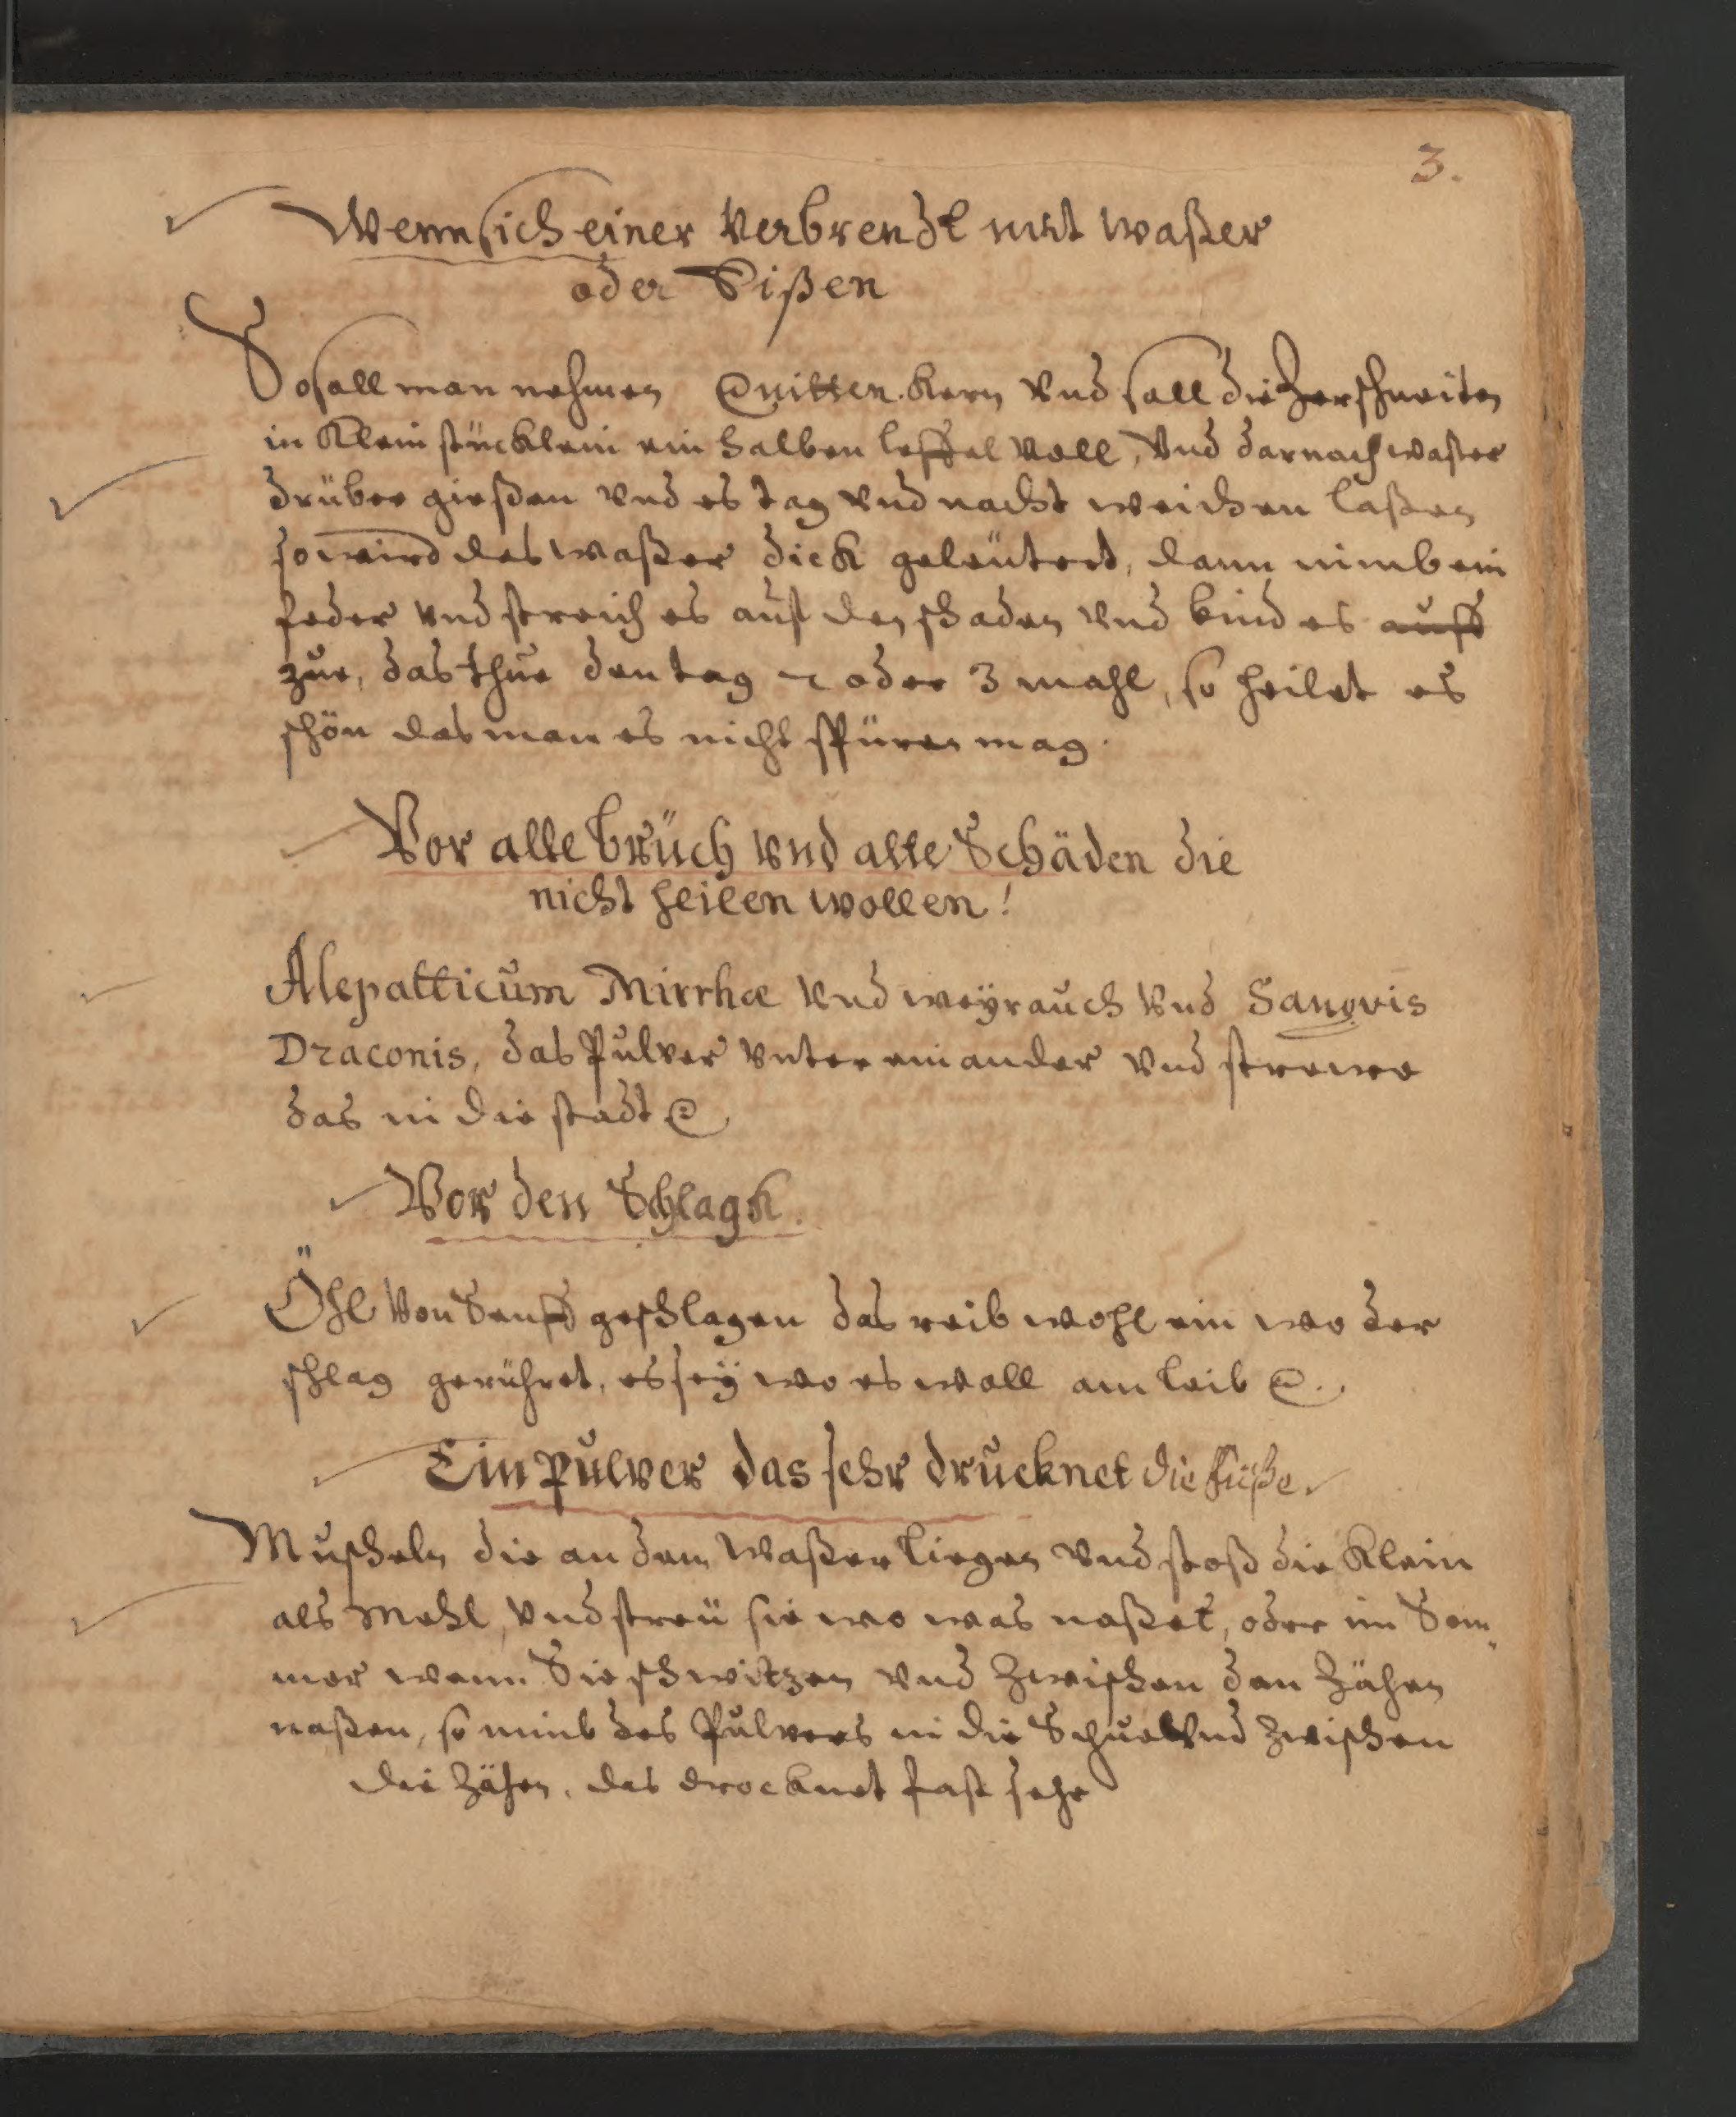 3.
Wenn sich einer Verbrendt mit Waßer
oder Eißen
So sall man nehmen Quitten Kern Vnd sall die Zerschneiten
in Klein stücklein ein halben leffel Voll, Vnd darnach waßer
drüber gießen Vnd es tag Vnd nacht weichen laßen
so wird das Waßer dick geleutert, dann nimb ein
feder Vnd streich es auf den schaden Vnd bind es auff
zue, das thue den tag 2 oder 3 mahl, so heilet es
schön das man es nicht spüren mag.
Vor alle brüch Vnd alte Schäden die
nicht heilen wollen!
Alepatticum Mirrhæ Vnd weÿrauch Vnd Sangvis
Draconis, das Pulver Vnter einander Vnd strewe
das in die stadt
Vor den Schlagk.
Öhl Von Senff geschlagen das reib wohl ein wo der
schlag gerühret, es seÿ wo es woll am leib
Ein Pulver das sehr drucknet die füße
Muscheln die an dem Waßer liegen Vnd stoß die Klein
als Mehl, Vnd streü sie wo was naßet, oder im Som„
mer wenn Sie schwitzen Vnd Zwischen den Zähen
naßen, so nimb des Pulvers in die Schue Vnd Zwischen
die Zähen, das drocknet fast sehr